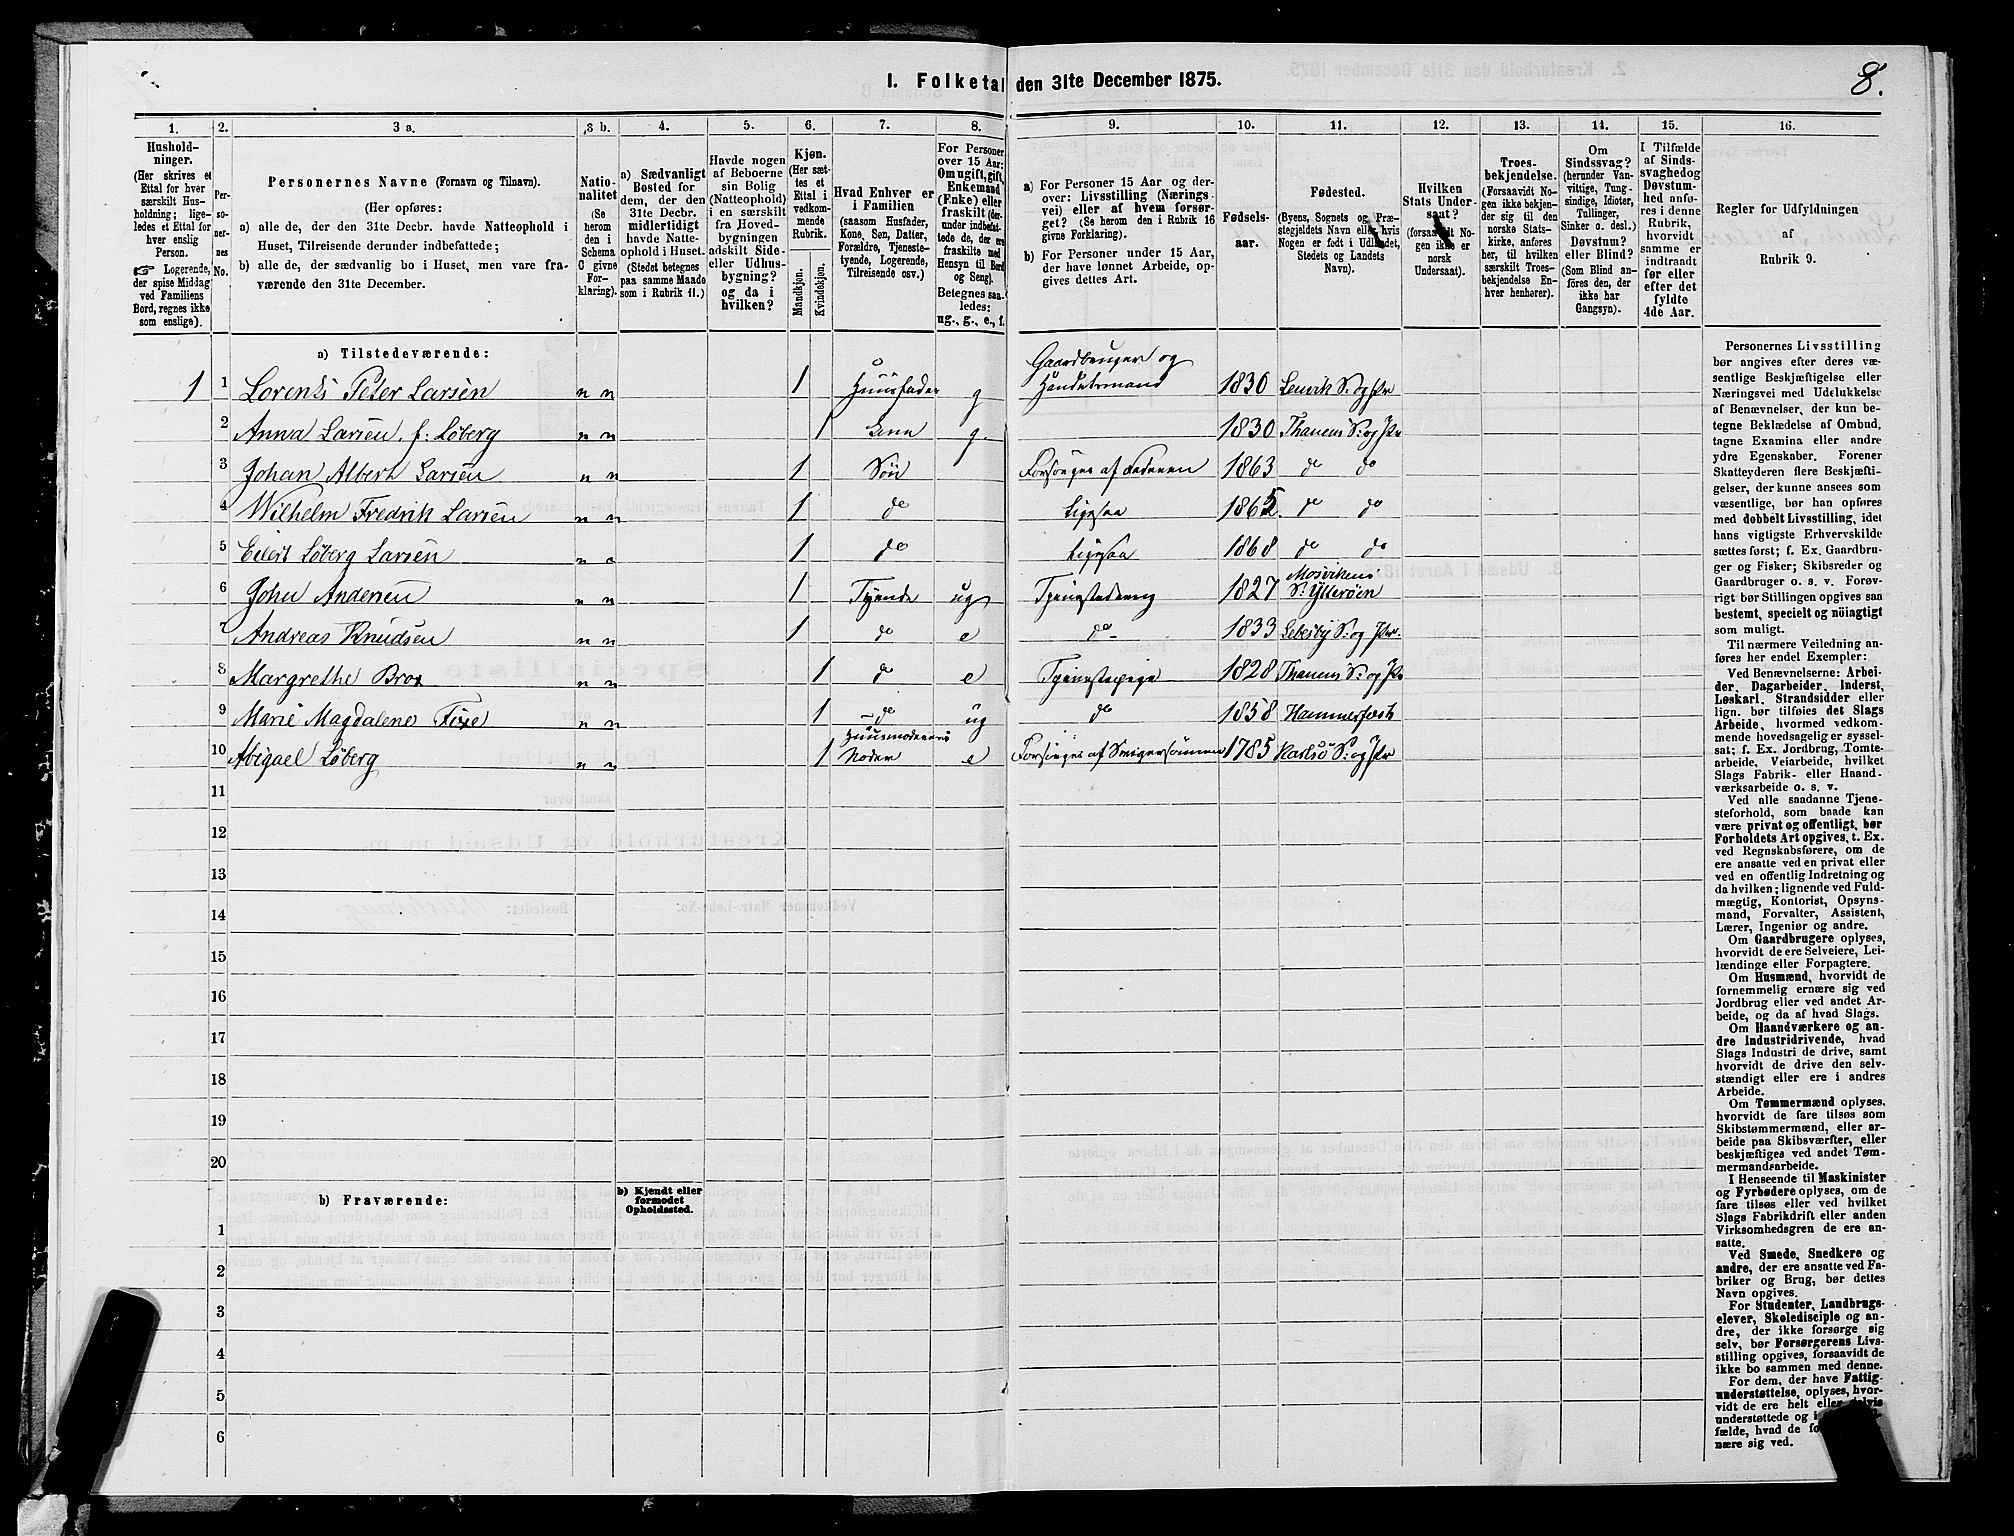 I. Folketal den 31te December 1875.
8.
1. 2. 3 a. 3 b. 4. 5. 6. 7. 8. 9. 10. 11. 12. 13. 14. 15. 16.
Husholdninger.
(Her skrives et
Ettal for hver
særskilt Husholdning;
ligeledes et Ettal for
hver enslig
Person.
☞ Logerende,
der spise Middag
ved Familiens
Bord, regnes ikke
som enslige).
Personernes No.
Personernes Navne (Fornavn og Tilnavn).
(Her opføres:
a) alle de, der den 31te Decbr. havde Natteophold i
Huset, Tilreisende derunder indbefattede;
b) alle de, der sædvanlig bo i Huset, men vare fraværende den 31te December.
Nationalitet
(Se
herom
den i
Schema
C givne
Forklaring).
a) Sædvanligt
Bosted for
dem, der den
31te Decbr.
midlertidigt
havde Natteophold i Huset.
(Stedet betegnes
paa samme Maade
som i Rubrik 11.)
Havde nogen
af Beboerne
sin Bolig
(Natteophold)
i en særskilt
fra Hovedbygningen
adskilt Side-
eller Udhusbygning?
og da i
hvilken?
Kjøn.
(Her sættes et
Ettal i
vedkommende
Rubrik.
Mandkjøn.
Kvindekjøn.
Hvad Enhver er
i Familien
(saasom Husfader,
Kone, Søn, Datter,
Forældre, Tjenestetyende, Logerende,
Tilreisende osv.)
For Personer
over 15 Aar:
Om ugift, gift,
Enkemand
(Enke) eller
fraskilt (derunder indbefattede de, der ere
fraskilte med
Hensyn til Bord
og Seng).
Betegnes saaledes:
ug., g., e., f.
a) For Personer 15 Aar og derover: Livsstilling (Næringsvei) eller af hvem forsørget? (Se herom den i Rubrik 16
givne Forklaring).
b) For Personer under 15 Aar,
der have lønnet Arbeide, opgives dettes Art.
Fødselsaar.
Fødested.
(Byens, Sognets og Præstegjeldets Navn eller hvis
Nogen er født i Udlandet,
Stedets og Landets
Navn).
Hvilken
Stats Undersaat?
(forsaavidt Nogen ikke er
norsk
Undersaat).
Troesbekjendelse.
(Forsaavidt Nogen ikke bekjender sig til den
norske Statskirke, anføres
her, til hvilken
særskilt Troesbekjendelse Enhver henhører).
Om
Sindssvag?
(herunder Vanvittige, Tungsindige, Idioter,
Tullinger,
Sinker o. desl.)
Døvstum?
eller Blind?
(Som Blind anføres den, der
ikke har
Gangsyn).
I Tilfælde
af Sindssvaghed og
Døvstumhed anføres i denne
Rubrik,
hvorvidt
samme er
indtraadt
før eller
efter det
fyldte
4de Aar.
Regler for Udfyldningen
af
Rubrik 9.
a) Tilstedeværende:
1 1 Lorents Peter Larsen n n 1 Huusfader g Gaardbruger og Handelsmand 1830 Lenvik S: og Pr
2 Anna Larsen f: Løberg n n 1 g. 1830 Thanens S: og Pr
3 Johan Albert Larsen n n 1 Søn Forsørges af Faderen 1863 do do
4 Wilhelm Fredrik Larsen n n 1 do Ligesaa 1865. do do
5 Eilert Løberg Larsen n n 1 do Ligesaa 1868 do do
6 John Andersen n n 1 Tyende ug Tjenestedreng 1827 Mosvikens S: Ytterøen
7 Andreas Knudsen n n 1 do e do 1833 Lebesby S: og Pr.
8 Margrethe Brox n n 1 do e Tjenestepige 1828 Thanens S: og Pr
9 Marie Magdalene n n 1 do ug do 1858 Hammerfest
10 Abigael Løberg n n 1 Huusmoderens Moder e Forsørges af Svigersønnen 1785 Karlsø S: og Pr
11
12
13
14
15
16
17
18
19
20
b) Fraværende:
b) Kjendt eller
formodet
Opholdssted.
1
2
3
4
5
6
Personernes Livsstilling
bør angives efter deres væsentlige Beskjæftigelse eller
Næringsvei med Udelukkelse
af Benævnelser, der kun betegne Beklædelse af Ombud,
tagne Examina eller andre
ydre Egenskaber. Forener
Skatteyderen flere Beskjæftigelser, der kunne ansees som
væsentlige, bør han opføres
med dobbelt Livsstilling, idet
hans vigtigste Erhvervskilde
sættes først; f. Ex. Gaardbruger og Fisker; Skibsreder og
Gaardbruger o. s. v. Forøvrigt bør Stillingen opgives saa
bestemt, specielt og nöiagtigt
som muligt.
Til nærmere Veiledning anføres her endel Exempler:
Ved Benævnelserne: Arbeider, Dagarbeider, Inderst,
Løskarl, Strandsidder eller
lign. bør tilføies det Slags
Arbeide, hvormed vedkommende hovedsagelig er sysselsat; f. Ex. Jordbrug, Tomtearbeide, Veiarbeide, hvilket
Slags Fabrik- eller Haandværksarbeide o. s. v.
Ved alle saadanne Tjenesteforhold, som baade kan
være privat og offentligt, bør
Forholdets Art opgives, t. Ex.
ved Regnskabsførere, om de
ere ansatte ved en privat eller
ved en offentlig Indretning og
da hvilken; lignende ved Fuldmægtig, Kontorist, Opsynsmand, Forvalter, Assistent,
Lærer, Ingeniør og andre.
Om Gaardbrugere oplyses,
hvorvidt de ere Selveiere, Leilændinge eller Forpagtere.
Om Husmænd, hvorvidt de
fornemmelig ernære sig ved
Jordbrug eller ved andet Arbeide, og da af hvad Slags.
Om Haandværkere og andre Industridrivende, hvad
Slags Industri de drive, samt
hvorvidt de drive den selvstændigt eller ere i andres
Arbeide.
Om Tømmermænd oplyses,
hvorvidt de fare tilsøs som
Skibstømmermænd, eller arbeide paa Skibsværfter, eller
beskjæftiges ved andet Tømmermandsarbeide.
I Henseende til Maskinister
og Fyrbødere oplyses, om de
fare tilsøs eller ved hvilket
Slags Fabrikdrift eller anden
Virksomhedsgren de ere ansatte.
Ved Smede, Snedkere og
andre, der ere ansatte ved Fabriker og Brug, bør dettes
Navn opgives.
For Studenter, Landbrugselever, Skoledisciple og andre, der ikke forsørge sig
selv, bør Forsørgerens Livsstilling opgives, forsaavidt de
ikke bo sammen med denne.
For dem, der have Fattigunderstøttelse, oplyses, hvorvidt de ere helt eller delvis
understøttede og i
fælde, hvad de
nære sig ved.